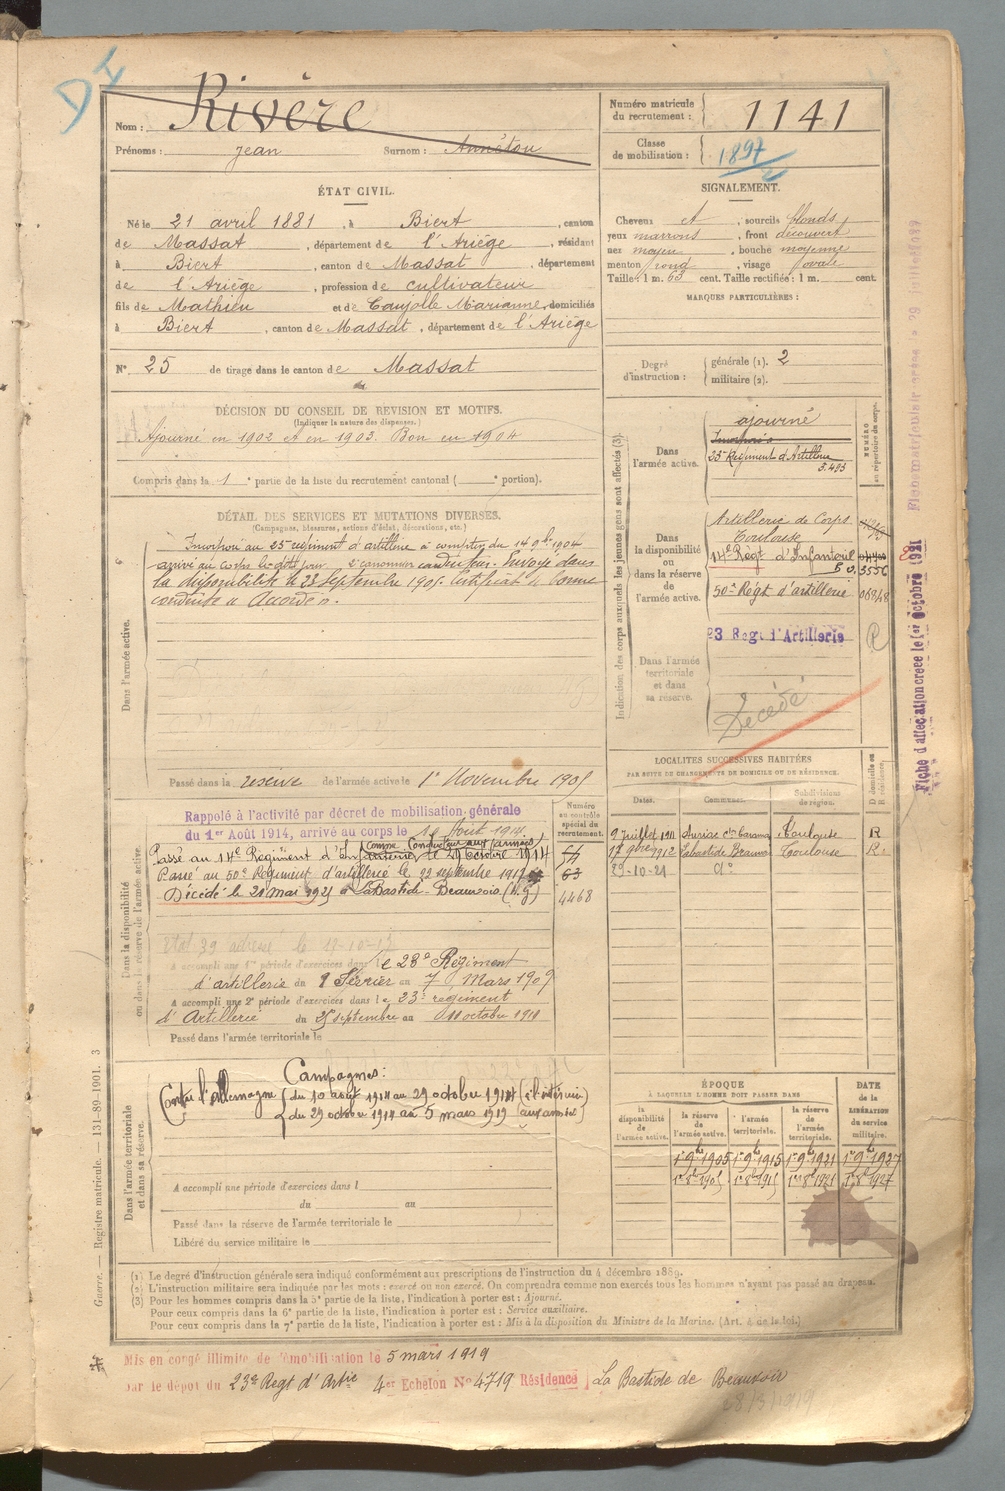 D I
Nom : Rivère
Prénoms : Jean Surnom : Annétou
Numéro matricule du recrutement : 1141
Classe de mobilisation : 1897
ÉTAT CIVIL.
Né le 21 avril 1881, à Biert, canton
de Massat, département de l'Ariège, résidant
à Biert, canton de Massat, département
de l'Ariège, profession de cultivateur
fils de Mathieu et de Caujolle Marianne, domiciliés
à Biert, canton de Massat, département de l'Ariège
N° 25 de tirage dans le canton de Massat
SIGNALEMENT.
Cheveux et, sourcils blonds
yeux marrons, front découvert
nez moyen, bouche moyenne
menton rond, visage ovale
Taille : 1 m. 63 cent. Taille rectifiée : 1 m. cent.
MARQUES PARTICULIÈRES :
Degré d'instruction : générale (1). 2
militaire (2).
DÉCISION DU CONSEIL DE REVISION ET MOTIFS.
(Indiquer la nature des dispenses.)
Ajourné en 1902 et en 1903. Bon en 1904
Compris dans la 1e partie de la liste du recrutement cantonal ( e portion).
DÉTAIL DES SERVICES ET MUTATIONS DIVERSES.
(Campagnes, blessures, actions d'éclat, décorations, etc.)
Dans l'armée active.
Incorporé au 25e régiment d'artillerie à compter du 14 9bre 1904
arrivé au corps le dit jour 2e canonnier conducteur. Envoyé dans
la disponibilité le 23 septembre 1905. Certificat de bonne
conduite "Accordé".
Passé dans la réserve de l'armée active le 1er Novembre 1905
Indication des corps auxquels les jeunes gens sont affectés (3).
NUMÉRO au répertoire du corps.
Dans l'armée active.
ajourné
Incorporé à
25e Régiment d'Artillerie
3.495
Dans la disponibilité ou dans la réserve de l'armée active.
Artillerie de Corps
Toulouse
14e Régt d'Infanterie
50e Régt d'artillerie
23 Regt d'Artillerie
Dans l'armée territoriale et dans sa réserve.
Décédé
Fiche d'affectation créée le 1er Octobre 1921
Dans la disponibilité ou dans la réserve de l'armée active.
Rappelé à l'activité par décret de mobilisation générale
du 1er Août 1914, arrivé au corps le Août 1914.
comme Conducteur aux armées
Passé au 14e Régiment d'Infanterie le 29 Octobre 1914
Passé au 50e Régiment d'artillerie le 22 septembre 1917
Décédé le 21 mai 1921 à LaBastide-Beauvoir (H.G)
Numéro au contrôle spécial du recrutement.
63
4468
A accompli une 1re période d'exercices dans le 23e Régiment
d'artillerie du Février au 7 Mars 1909
A accompli une 2e période d'exercices dans le 23e régiment
d'Artillerie du 25 septembre au 11 octobre 1911
Passé dans l'armée territoriale le
LOCALITÉS SUCCESSIVES HABITÉES
PAR SUITE DE CHANGEMENTS DE DOMICILE OU DE RÉSIDENCE.
Dates. Communes. Subdivisions de région. D domicile ou R résidence.
9 Juillet 1911 Auriac con Caraman Toulouse R
17 9bre 1912 Labastide Beauvoir Toulouse R
29-10-21 do
Dans l'armée territoriale et dans sa réserve.
Campagnes :
Contre l'Allemagne (du 10 août 1914 au 29 octobre 1914 (à l'intérieur)
(du 29 octobre 1914 au 5 mars 1919 (aux armées)
A accompli une période d'exercices dans l
du au
Passé dans la réserve de l'armée territoriale le
Libéré du service militaire le
ÉPOQUE
À LAQUELLE L'HOMME DOIT PASSER DANS
DATE de la LIBÉRATION du service militaire.
la disponibilité de l'armée active. la réserve de l'armée active. l'armée territoriale. la réserve de l'armée territoriale.
1er 9bre 1905 1er 9bre 1915 1er 9bre 1921 1er 9bre 1927
1er 8bre 1905 1er 8bre 1915 1er 8bre 1921 1er 8bre 1927
(1) Le degré d'instruction générale sera indiqué conformément aux prescriptions de l'instruction du 4 décembre 1889.
(2) L'instruction militaire sera indiquée par les mots : exercé ou non exercé. On comprendra comme non exercés tous les hommes n'ayant pas passé au drapeau.
(3) Pour les hommes compris dans la 5e partie de la liste, l'indication à porter est : Ajourné.
Pour ceux compris dans la 6e partie de la liste, l'indication à porter est : Service auxiliaire.
Pour ceux compris dans la 7e partie de la liste, l'indication à porter est : Mis à la disposition du Ministre de la Marine. (Art. 4 de la loi.)
Guerre. — Registre matricule. — 131-89-1901. 3
Mis en congé illimité de démobilisation le 5 mars 1919
par le dépôt du 23e Regt d'Artie 4er Echelon N° 4719 Résidence La Bastide de Beauvoir